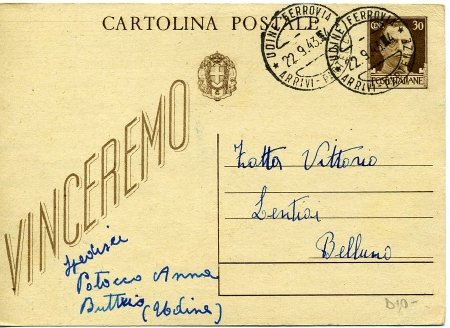 CARTOLINA POSTALE
UDINE FERROVIA
22.9.43
ARRIVI-
UDINE FERROVIA
22.9.
ARRIVI-
30
POSTE ITALIANE
VINCEREMO
Zatta Vittorio
Lentiai
Belluno
Spedisce
Potocco Anna
Buttrio
(Udine)